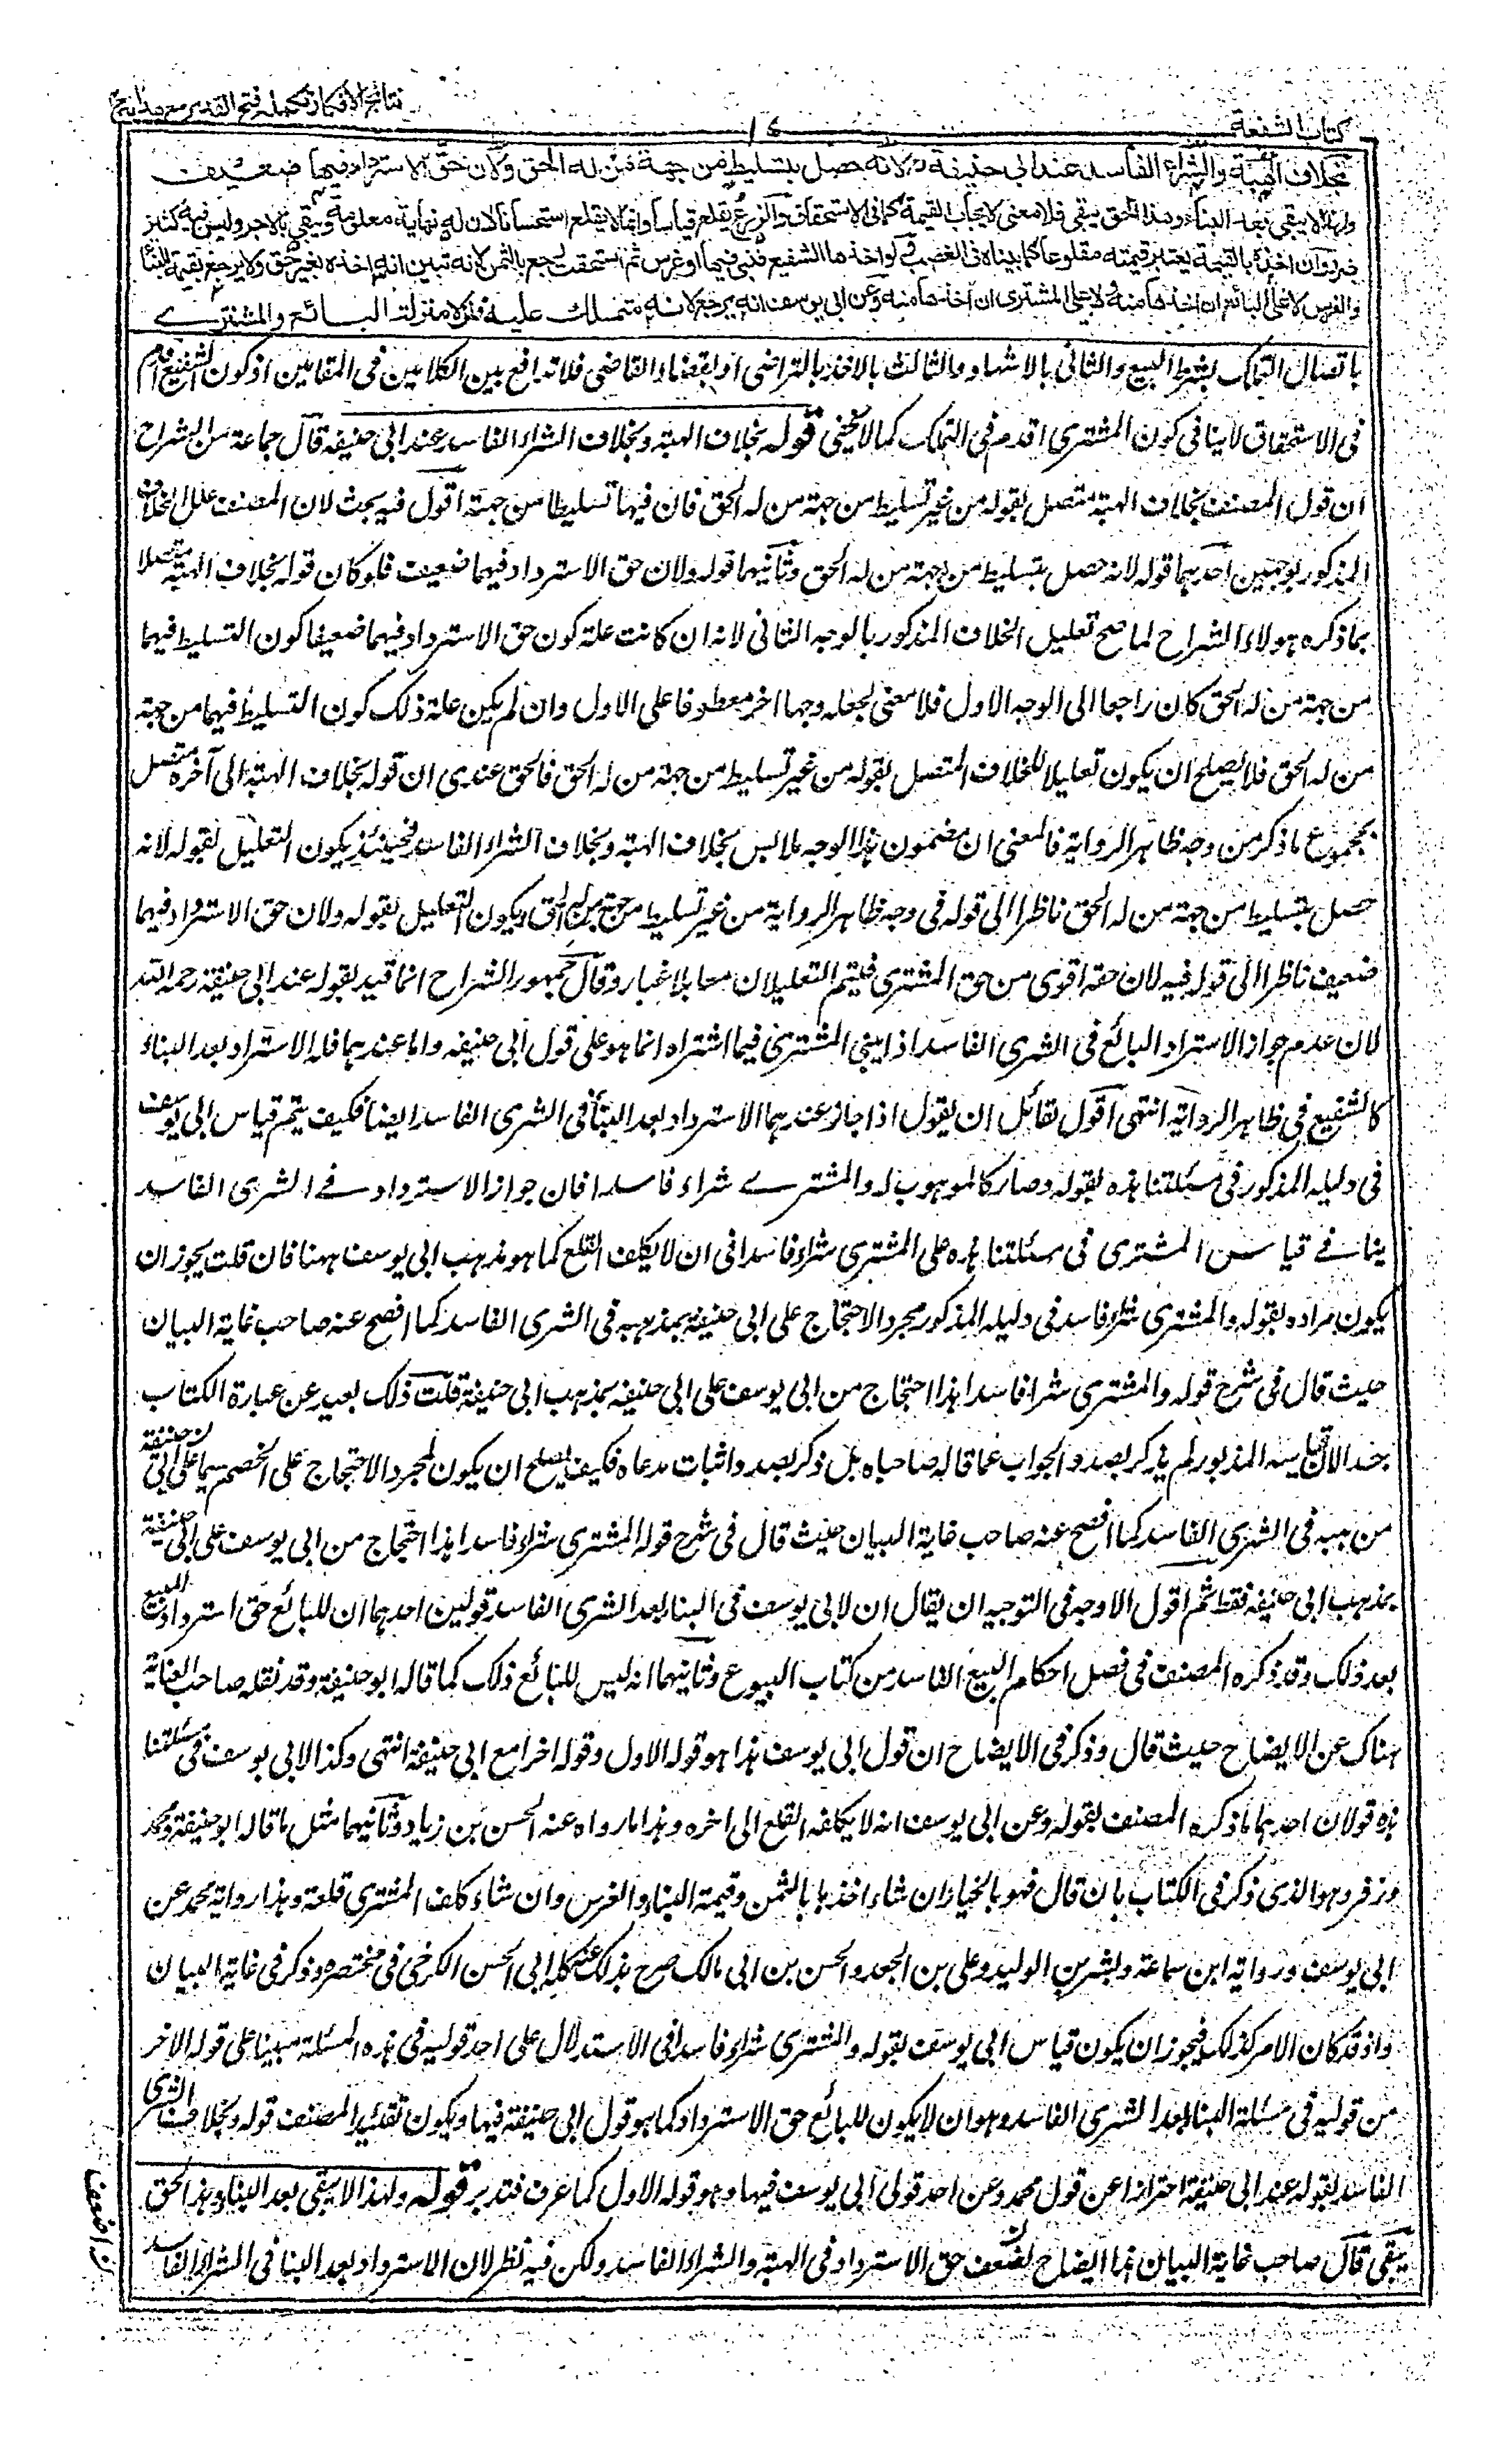 نتائج الأفكار تكملہ فتح القدير مع هدايہ ج
كتاب الشفعة
بخلاف الهبة والشراء الفاسد عند ابي حنيفة رح لانه حصل بتسليط من جهة من له الحق ولان حق الاسترداد فيهما ضعيف
ولهذا لا يبقى بعد البناء وهذا الحق يبقى فلا معنى لايجاب القيمة كما في الاستحقاق والزرع يقلع قياسا وانما لا يقلع استحسانا لان له نهاية معلومة ويبقى بالاجر وليس فيه كثير
ضرر وان اخذه بالقيمة يعتبر قيمته مقلوعا كما بيناه في الغصب ولو اخذها الشفيع فبنى فيها او غرس ثم استحقت رجع بالثمن لانه تبين انه اخذه بغير حق ولا يرجع بقيمة البناء
والغرس لا على البائع ان اخذها منه ولا على المشتري ان اخذها منه وعن ابي يوسف انه يرجع لانه متملك عليه فنزلا منزلة البائع والمشتري
باتصال التملك بشرط البيع والثاني بالاشهاد والثالث بالاخذ بالتراضي او بقضاء القاضي فلا تدافع بين الكلامين في المقامين اذ كون الشفيع اقدم
في الاستحقاق لا ينافي كون المشتري اقدم في التملك كما لا يخفى قوله بخلاف الهبة وبخلاف الشراء الفاسد عند ابي حنيفة قال جماعة من الشراح
ان قول المصنف بخلاف الهبة متصل بقوله من غير تسليط من جهة من له الحق فان فيها تسليطا من جهته اقول فيه بحث لان المصنف علل الخلاف
المذكور بوجهين احدهما قوله لانه حصل بتسليط من جهة من له الحق وثانيهما قوله ولان حق الاسترداد فيهما ضعيف فلو كان قوله بخلاف الهبة متصلا
بما ذكره هولاء الشراح لما صح تعليل الخلاف المذكور بالوجه الثاني لانه ان كانت علة كون حق الاسترداد فيهما ضعيفا كون التسليط فيهما
من جهة من له الحق كان راجعا الى الوجه الاول فلا معنى لجعله وجها اخر معطوفا على الاول وان لم يكن علة ذلك كون التسليط فيهما من جهة
من له الحق فلا يصلح ان يكون تعليلا للخلاف المتصل بقوله من غير تسليط من جهة من له الحق فالحق عندي ان قوله بخلاف الهبة الى آخره متصل
بمجموع ما ذكر من وجه ظاهر الرواية فالمعنى ان مضمون هذا الوجه ملابس بخلاف الهبة وبخلاف الشراء الفاسد فحينئذ يكون التعليل بقوله لانه
حصل بتسليط من جهة من له الحق ناظرا الى قوله في وجه ظاهر الرواية من غير تسليط من جهة من له الحق ويكون التعليل بقوله ولان حق الاسترداد فيهما
ضعيف ناظرا الى قوله فيه لان حقه اقوى من حق المشتري فيتم التعليلان معا بلا غبار وقال جمهور الشراح انما قيد بقوله عند ابي حنيفة رحمه الله
لان عدم جواز الاسترداد البائع في الشرى الفاسد اذا بنى المشتري فيما اشتراه انما هو على قول ابي حنيفة واما عندهما فله الاسترداد بعد البناء
كالشفيع في ظاهر الرواية انتهى اقول لقائل ان يقول اذا جاز عندهما الاسترداد بعد البناء في الشرى الفاسد ايضا فكيف يتم قياس ابي يوسف
في دليله المذكور في مسئلتنا هذه بقوله وصار كالموهوب له والمشتري شراء فاسدا فان جواز الاسترداد في الشرى الفاسد
ينافي قياس المشتري في مسئلتنا هذه على المشتري شراء فاسدا في ان لا يكلف القلع كما هو مذهب ابي يوسف ههنا فان قلت يجوز ان
يكون مراده بقوله والمشتري شراء فاسد في دليله المذكور مجرد الاحتجاج على ابي حنيفة بمذهبه في الشرى الفاسد كما افصح عنه صاحب غاية البيان
حيث قال في شرح قوله والمشتري شراء فاسدا هذا احتجاج من ابي يوسف على ابي حنيفة بمذهب ابي حنيفة قلت ذلك بعيد عن عبارة الكتاب
جدا لان قياسه المذبور لم يذكر بصدد الجواب عما قاله صاحباه بل ذكر بصدد اثبات مدعاه فكيف يصلح ان يكون لمجرد الاحتجاج على الخصم سيما على ابي حنيفة
من هبه في الشرى الفاسد كما افصح عنه صاحب غاية البيان حيث قال في شرح قوله المشتري شراء فاسدا هذا احتجاج من ابي يوسف على ابي حنيفة
بمذهب ابي حنيفة فقط ثم اقول الاوجه في التوجيه ان يقال ان لابي يوسف في البناء بعد الشرى الفاسد قولين احدهما ان للبائع حق استرداد المبيع
بعد ذلك وقد ذكره المصنف في فصل احكام البيع الفاسد من كتاب البيوع وثانيهما انه ليس للبائع ذلك كما قاله ابو حنيفة وقد نقله صاحب العناية
هناك عن الايضاح حيث قال وذكر في الايضاح ان قول ابي يوسف هذا هو قوله الاول وقوله اخرا مع ابي حنيفة انتهى وكذا لابي يوسف في مسئلتنا
هذه قولان احدهما ما ذكره المصنف بقوله وعن ابي يوسف انه لا يكلفه القلع الى اخره وهذا ما رواه عنه الحسن بن زياد وثانيهما مثل ما قاله ابو حنيفة ومحمد
وزفر وهو الذي ذكر في الكتاب بان قال فهو بالخيار ان شاء اخذها بالثمن وقيمة البناء والغرس وان شاء كلف المشتري قلعة وهذا رواية محمد عن
ابي يوسف ورواية ابن سماعة وبشر بن الوليد وعلي بن الجعد والحسن بن ابي مالك صرح بذلك كله ابي الحسن الكرخي في مختصره وذكر في غاية البيان
واذ قد كان الامر كذلك فيجوز ان يكون قياس ابي يوسف بقوله والمشتري شراء فاسدا في الاستدلال على احد قوليه في هذه المسئلة مبينا على قوله الاخر
من قوليه في مسئلة البناء بعد الشرى الفاسد وهو ان لا يكون للبائع حق الاسترداد كما هو قول ابي حنيفة فيها ويكون تقييد المصنف قوله وبخلاف الشرى
الفاسد بقوله عند ابي حنيفة احترازا عن قول محمد وعن احد قولي ابي يوسف فيها وهو قوله الاول كما عرف فتدبر قوله ولهذا لا يبقى بعد البناء وهذا الحق
يبقى قال صاحب غاية البيان هذا ايضاح لضعف حق الاسترداد في الهبة والشراء الفاسد ولكن فيه نظر لان الاسترداد بعد البنا في الشراء الفاسد